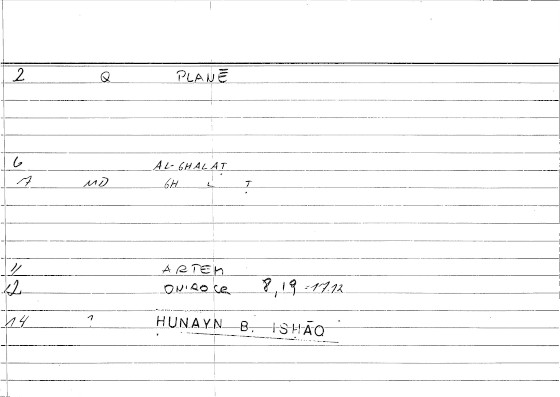 2 Q PLANĒ
6 AL-GHALAṬ
7 MD GH L Ṭ
11 ARTEM
12 ONIROCR 8,19 - 17.12
14 1 ḤUNAYN B. ISḤĀQ